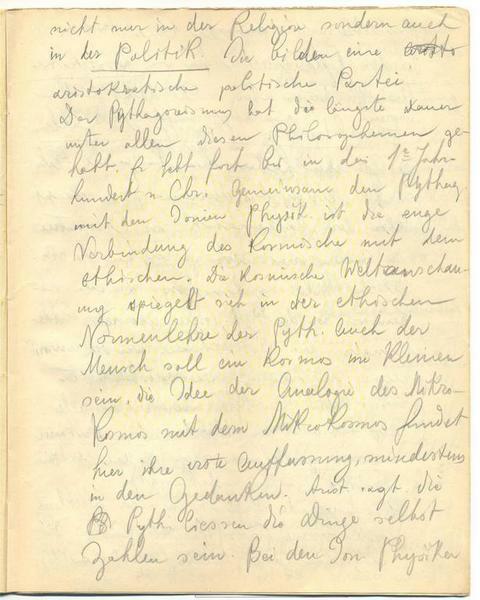 nicht nur in der Religion sondern auch
in der Politik. Sie bilden eine
aristokratische politische Partei
Der Pythagoreismus hat die längste dauer
unter allen diesen Philosophemen ge-
habt. Er lebt fort bis in das 1te Jahr-
hundert n. Chr. Gemeinsam den Pythag.
mit den Ionien Physik. ist die enge
Verbindung des Kosmische mit dem
ethischen. Die kosmische Weltanschau-
ung spiegelt sich in der ethischen
Normenlehre der Pyth. auch der
Mensch soll ein Kosmos im Kleinen
sein, die Idee der Analogie des Makro-
kosmos mit dem Mikrokosmos findet
hier ihre erste Auffassung, mindestens
in den Gedanken. Arist. sagt, die
Pyth. liessen die Dinge selbst
Zahlen sein. Bei den Ion. Physiker